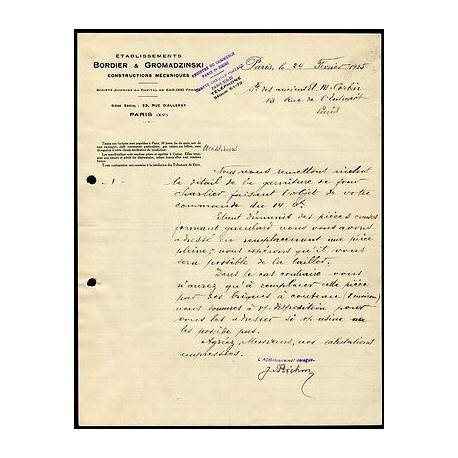 ÉTABLISSEMENTS
BORDIER & GROMADZINSKI
CONSTRUCTIONS MÉCANIQUES
SOCIÉTÉ ANONYME AU CAPITAL DE 240.000 FRANCS
SIÈGE SOCIAL : 23, RUE D'ALLERAY
PARIS (XVe)
REGISTRE DU COMMERCE
TÉLÉPHONE
SÉGUR 51-73
Paris, le 24 Février 1925
Sté des anciens Et. M. Corbin
13 Rue de l'Entrepôt
Paris
Messieurs
- 1 -
Nous vous remettons inclus
le détail de la garniture de four
Charlier faisant l'objet de votre
commande du 14 ct.
Etant démunis des pièces creuses
formant gueulard nous vous avons
adressé en remplacement une pièce
pleine; nous espérons qu'il vous
sera possible de la tailler.
Dans le cas contraire vous
n'aurez qu'à remplacer cette pièce
par des briques à couteau (
nous sommes à v/ disposition pour
vous les adresser si v/ usine ne
les possède pas.
Agréez, Messieurs, nos salutations
empressées.
L'ADMINISTRATEUR DÉLÉGUÉ